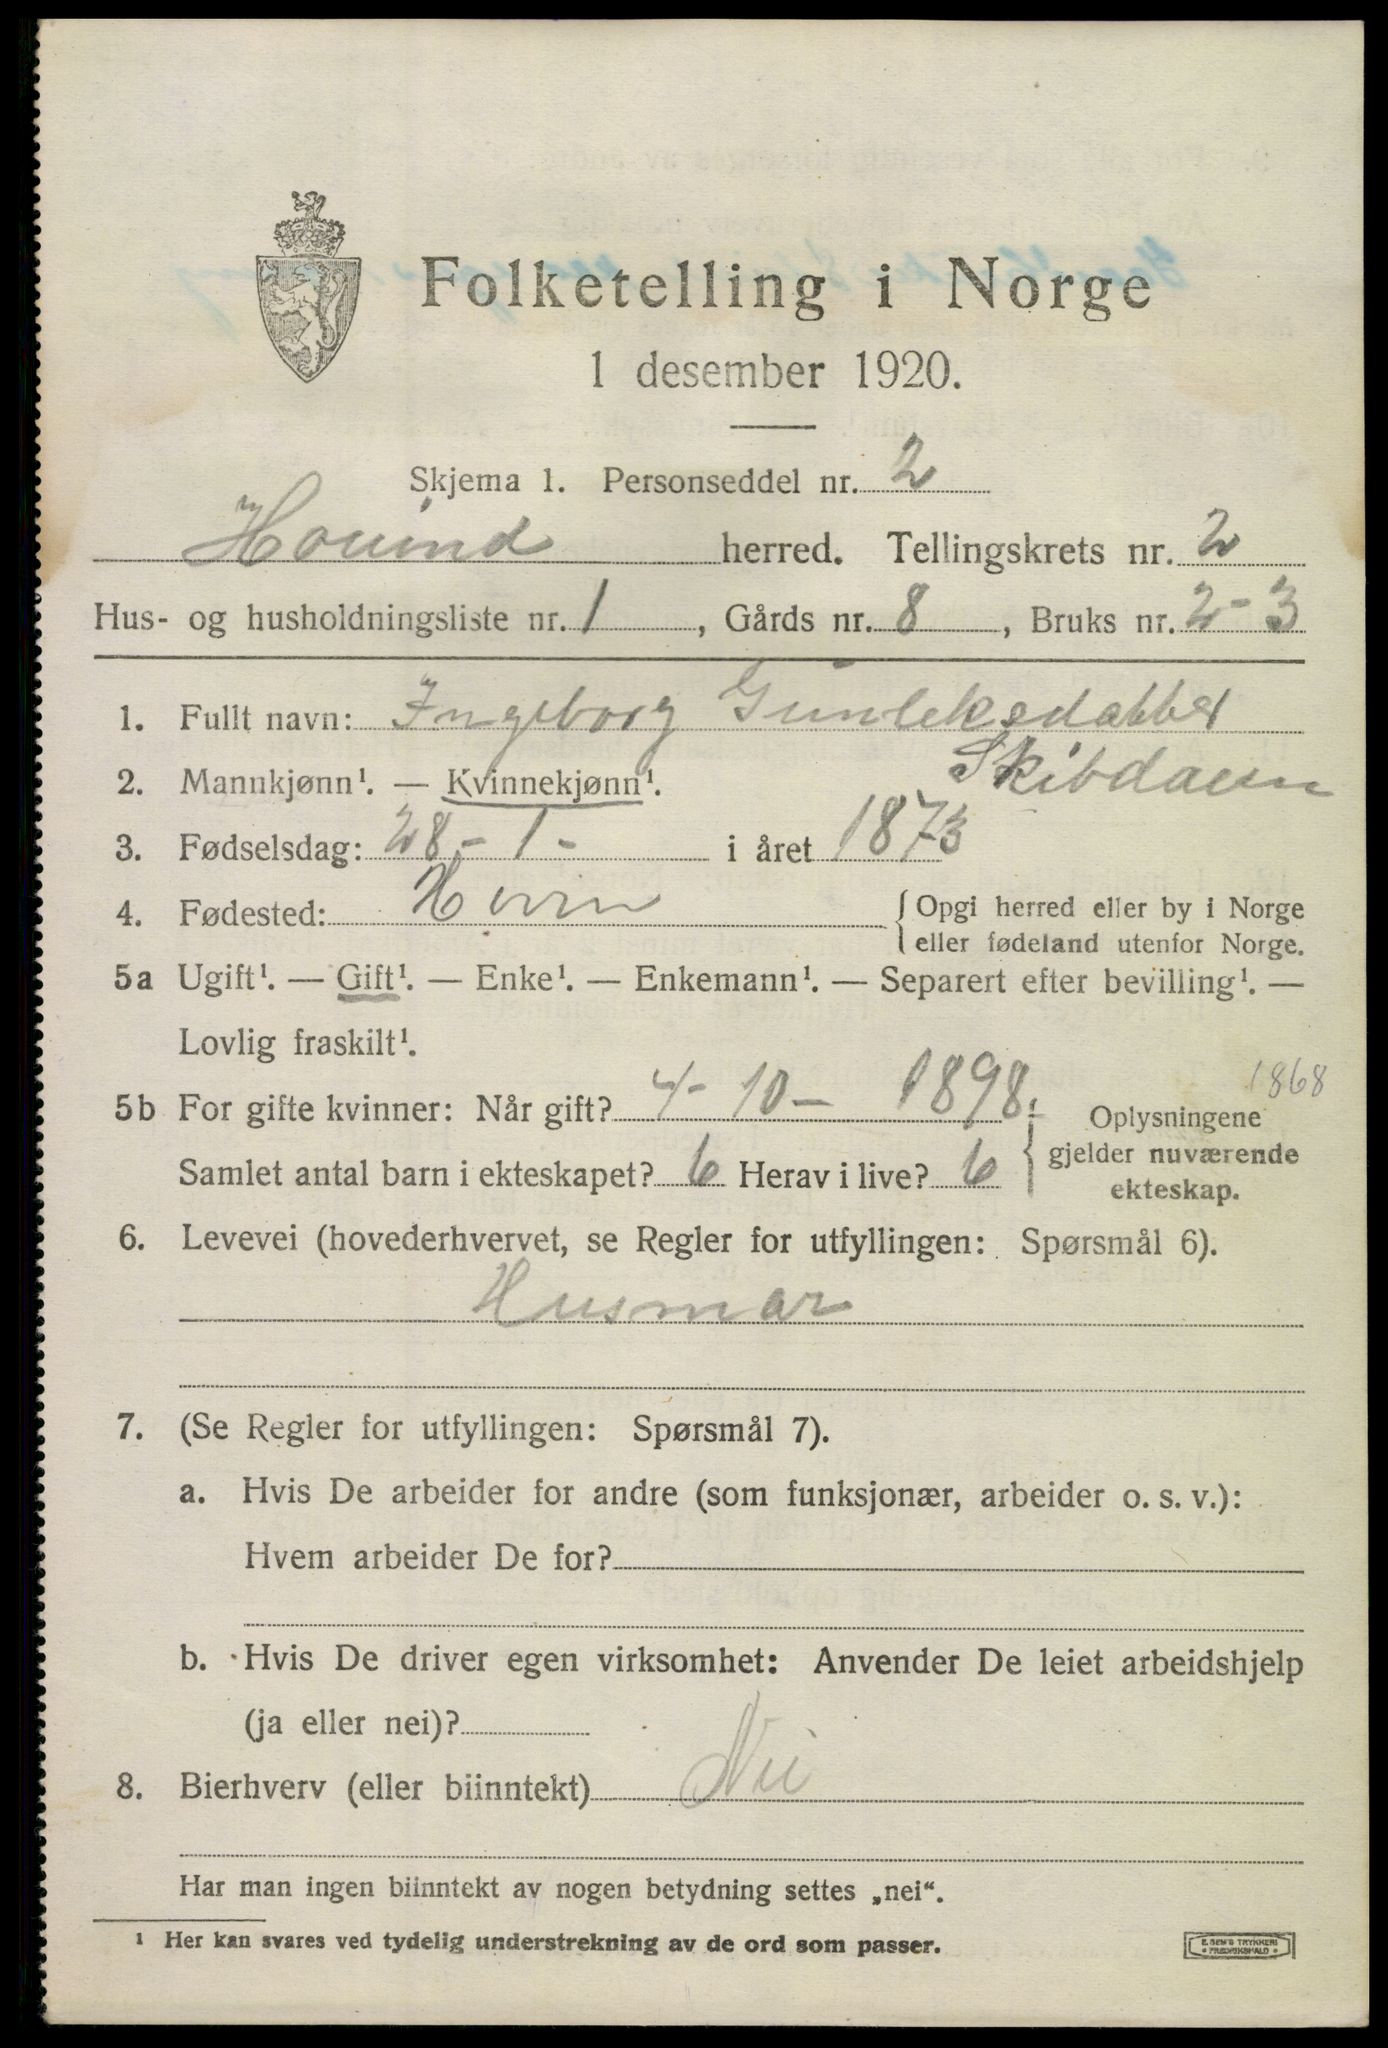 Folketelling i Norge
1 desember 1920.
Skjema 1. Personseddel nr. 2
Hovind herred. Tellingskrets nr. 2
Hus- og husholdningsliste nr. 1, Gårds nr. 8, Bruks nr. 2-3
1. Fullt navn: Ingeborg Gunleksdatter
2. Mannkjønn¹. — Kvinnekjønn¹.
3. Fødselsdag: 28-1- i året 1873
4. Fødested: Hovin {Opgi herred eller by i Norge
eller fødeland utenfor Norge.
5a Ugift¹. — Gift¹. — Enke¹. — Enkemann¹. — Separert efter bevilling¹. —
Lovlig fraskilt¹.
1868
5b For gifte kvinner: Når gift? 4-10-1898. Oplysningene
Samlet antal barn i ekteskapet? 6 Herav i live? 6 {gjelder nuværende
ekteskap.
6. Levevei (hovederhvervet, se Regler for utfyllingen: Spørsmål 6).
Husmor
7. (Se Regler for utfyllingen: Spørsmål 7).
a. Hvis De arbeider for andre (som funksjonær, arbeider o. s. v.):
Hvem arbeider De for?
b. Hvis De driver egen virksomhet: Anvender De leiet arbeidshjelp
(ja eller nei)?
8. Bierhverv (eller biinntekt) Nei
Har man ingen biinntekt av nogen betydning settes „nei“.
¹ Her kan svares ved tydelig understrekning av de ord som passer.
E. SEM'S TRYKKERI
FREDRIKSHALD